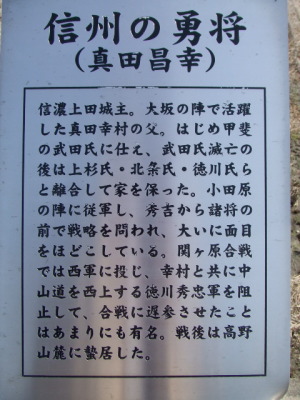 信州の勇将
(真田昌幸)
信濃上田城主。大坂の陣で活躍
した真田幸村の父。はじめ甲斐
の武田氏に仕え、武田氏滅亡の
後は上杉氏・北条氏・徳川氏ら
と離合して家を保った。小田原
の陣に従軍し、秀吉から諸将の
前で戦略を問われ、大いに面目
をほどこしている。関ヶ原合戦
では西軍に投じ、幸村と共に中
山道を西上する徳川秀忠軍を阻
止して、合戦に遅参させたこと
はあまりにも有名。戦後は高野
山麓に蟄居した。